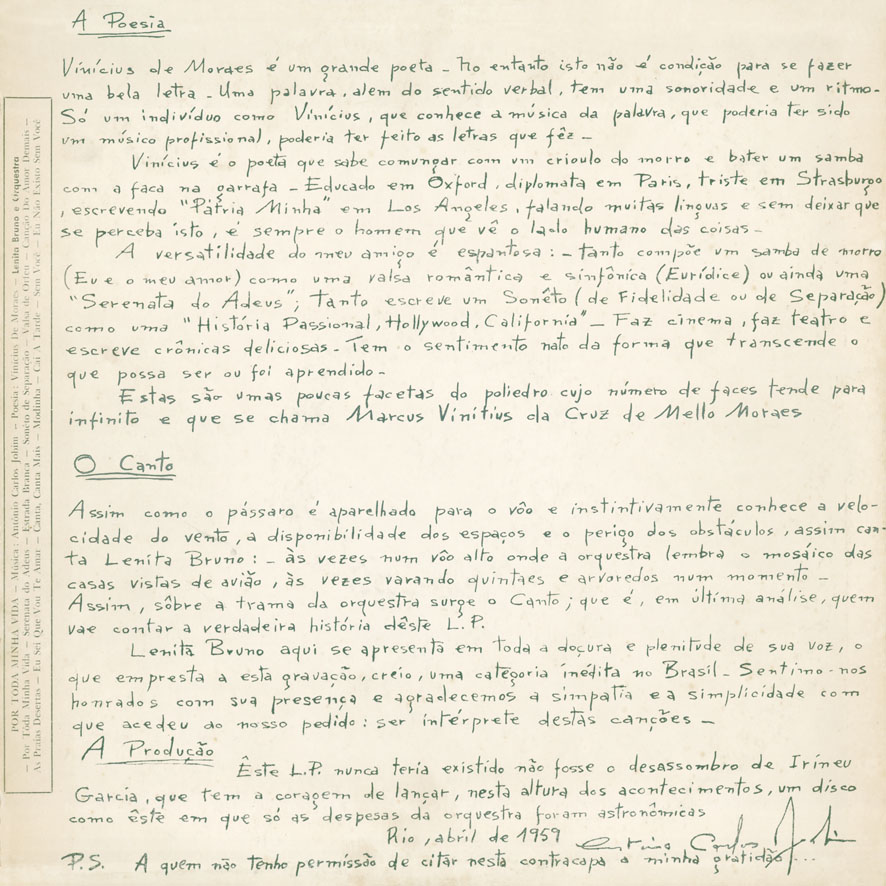 A Poesia
Vinícius de Moraes é um grande poeta - No entanto isto não é condição para se fazer
uma bela letra - Uma palavra, alem do sentido verbal, tem uma sonoridade e um ritmo -
Só um indivíduo como Vinícius, que conhece a música da palavra, que poderia ter sido
um músico profissional, poderia ter feito as letras que fêz -
Vinícius é o poeta que sabe comungar com um crioulo do morro e bater um samba
com a faca na garrafa - Educado em Oxford, diplomata em Paris, triste em Strasburgo
, escrevendo "Pátria Minha" em Los Angeles, falando muitas linguas e sem deixar que
se perceba isto, é sempre o homem que vê o lado humano das coisas -
A versatilidade do meu amigo é espantosa: - tanto compõe um samba de morro
(Eu e o meu amor) como uma valsa romântica e sinfônica (Eurídice) ou ainda uma
"Serenata do Adeus"; tanto escreve um Sonêto (de Fidelidade ou de Separação)
como uma "História Passional, Hollywood, California" - Faz cinema, faz teatro e
escreve crônicas deliciosas - Tem o sentimento nato da forma que transcende o
que possa ser ou foi aprendido -
Estas são umas poucas facetas do poliedro cujo número de faces tende para
infinito e que se chama Marcus Vinitius da Cruz de Mello Moraes
O Canto
Assim como o pássaro é aparelhado para o vôo e instintivamente conhece a velo-
cidade do vento, a disponibilidade dos espaços e o perigo dos obstáculos, assim can-
ta Lenita Bruno: - às vezes num vôo alto onde a orquestra lembra o mosáico das
casas vistas de avião, às vezes varando quintaes e arvoredos num momento -
Assim, sôbre a trama da orquestra surge o Canto; que é, em última análise, quem
vae contar a verdadeira história dêste L.P.
Lenita Bruno aqui se apresenta em toda a doçura e plenitude de sua voz, o
que empresta a esta gravação, creio, uma categoria inédita no Brasil - Sentimo-nos
honrados com sua presença e agradecemos a simpatia e a simplicidade com
que acedeu ao nosso pedido: ser intérprete destas canções -
A Produção
Êste L.P. nunca teria existido não fosse o desassombro de Irineu
Garcia, que tem a coragem de lançar, nesta altura dos acontecimentos, um disco
como êste em que só as despesas da orquestra foram astronômicas
Rio, abril de 1959
Antonio Carlos Jobim
P.S. A quem não tenho permissão de citar nesta contracapa a minha gratidão...
POR TODA MINHA VIDA — Música: Antônio Carlos Jobim — Poesia: Vinícius De Moraes — Lenita Bruno e Orquestra
— Por Tôda Minha Vida — Serenata do Adeus — Estrada Branca — Soneto de Separação — Valsa de Orfeu — Canção Do Amor Demais —
As Praias Desertas — Eu Sei Que Vou Te Amar — Canta, Canta Mais — Modinha — Cai A Tarde — Sem Você — Eu Não Existo Sem Você